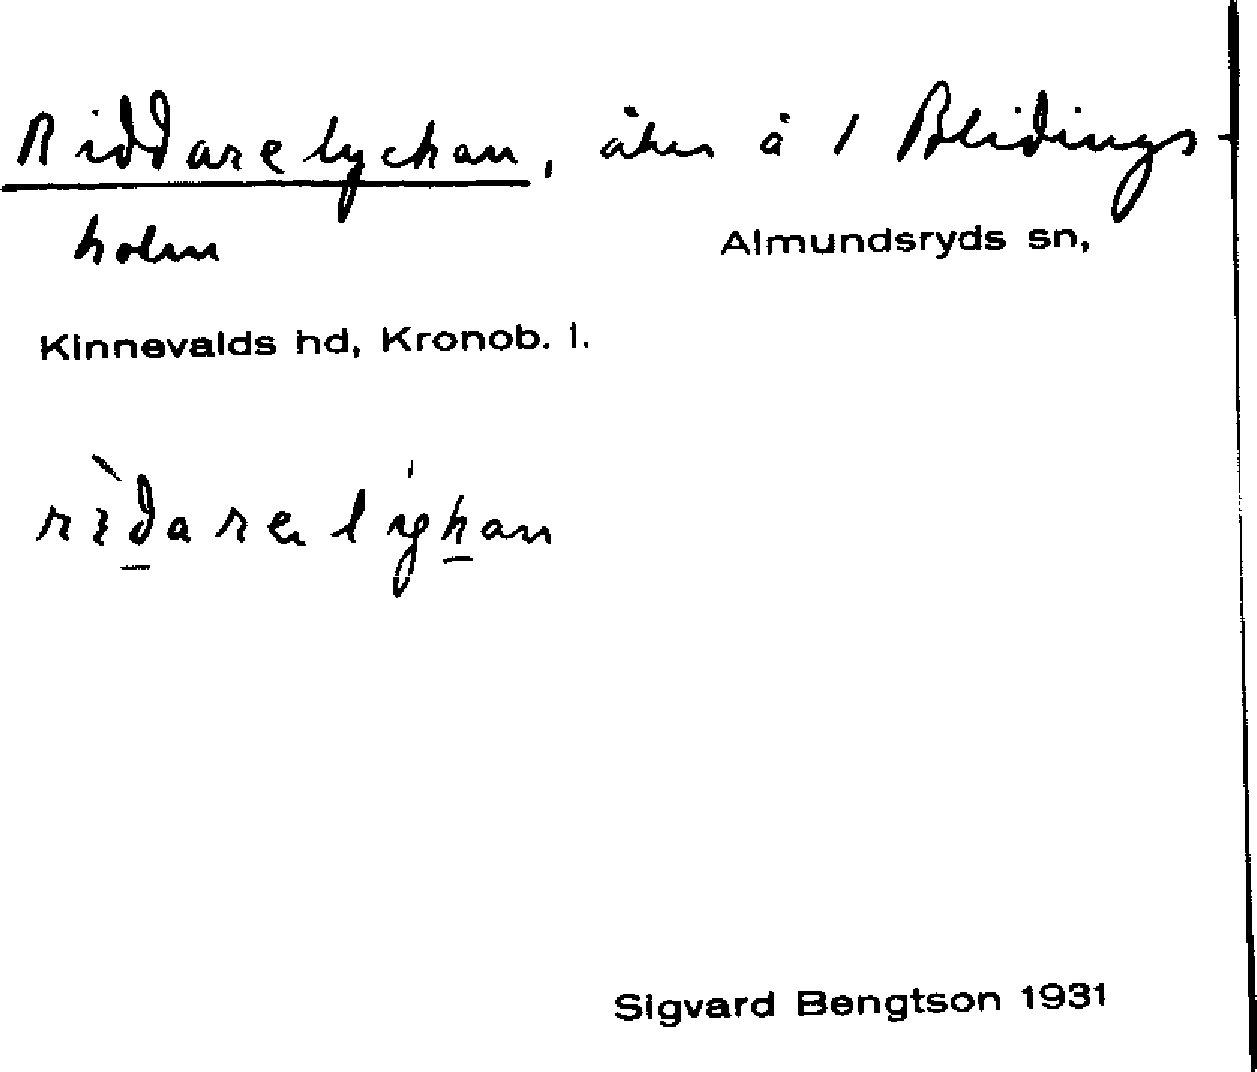 Riddarelyckan, åker å 1 Blidings-
holm
Almundsryds sn,
Kinnevalds hd, Kronob. l.
rìdarelýkan
Sigvard Bengtson 1931